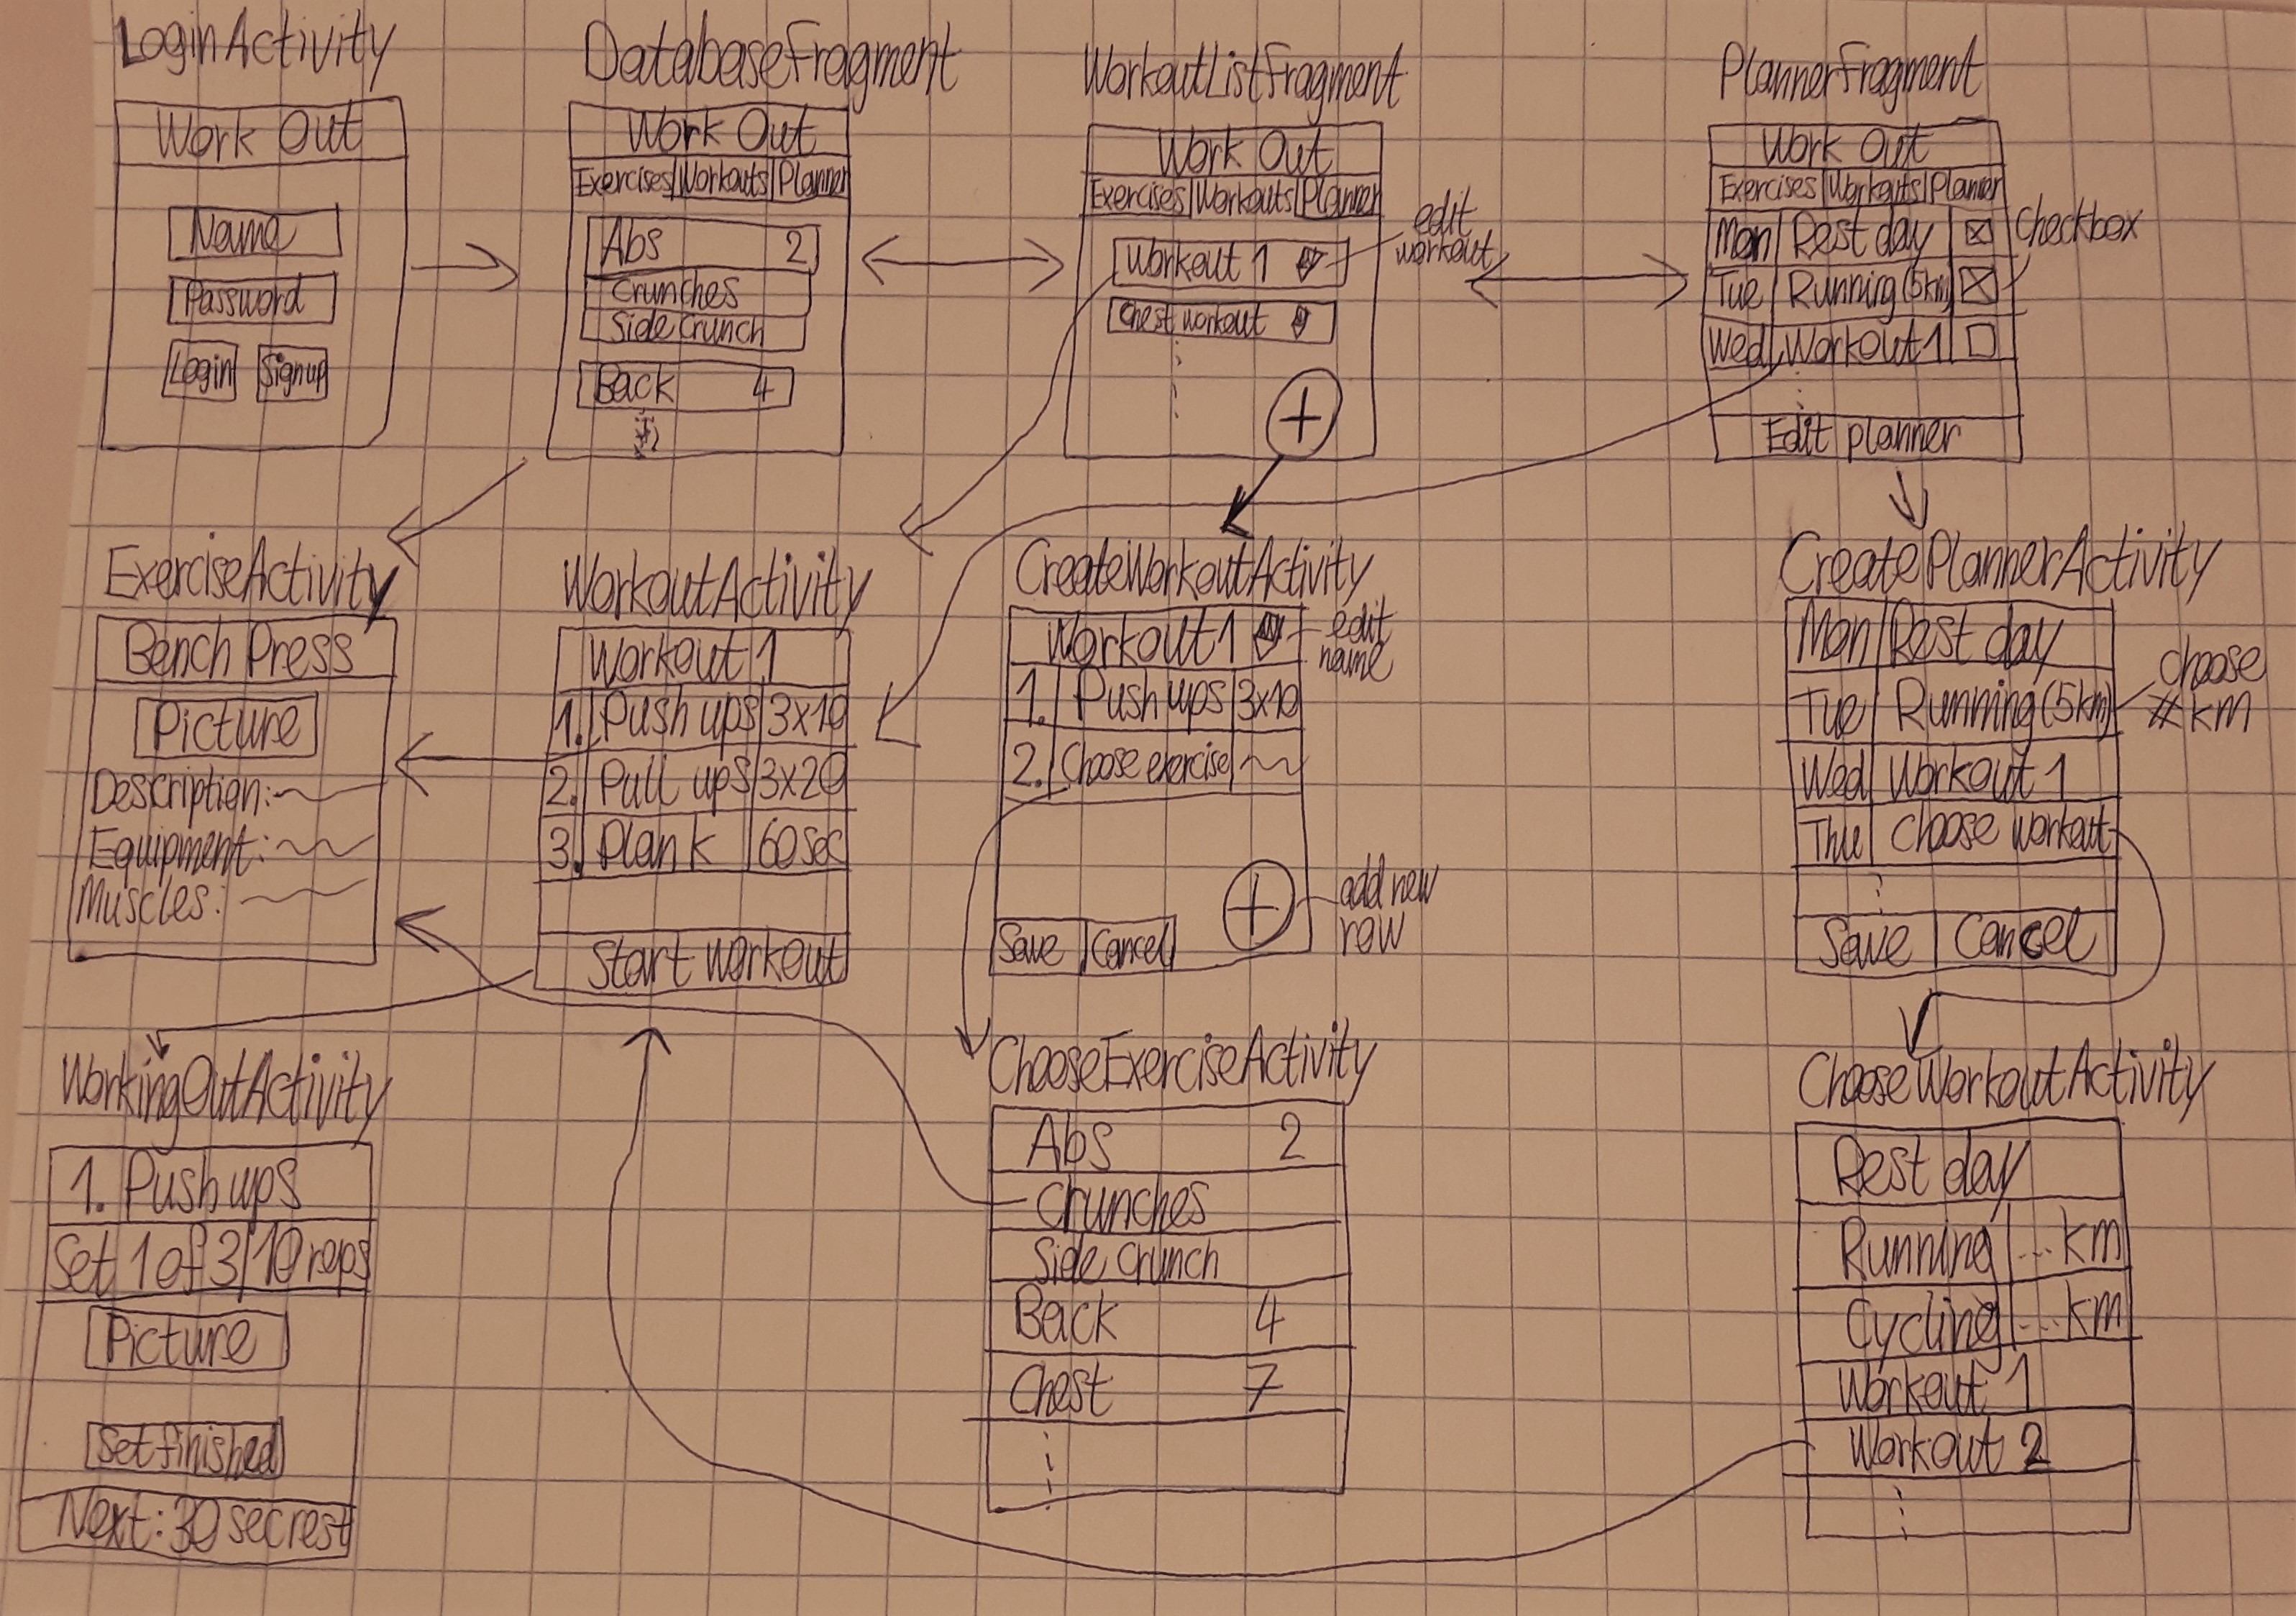 LoginActivity
Work Out
Name
Password
Login Signup
DatabaseFragment
Work Out
Exercises|Workouts|Planner
Abs 2
Crunches
Side Crunch
Back 4
WorkoutListFragment
Work Out
Exercises|Workouts|Planner
Workout 1
edit
workout
Chest workout
+
PlannerFragment
Work Out
Exercises|Workouts|Planner
Mon Rest day
checkbox
Tue Running (5km)
Wed Workout 1
Edit planner
ExerciseActivity
Bench Press
Picture
Description:
Equipment:
Muscles:
WorkoutActivity
Workout 1
1. Push ups 3x10
2. Pull ups 3x20
3. Plank 60 sec
Start workout
CreateWorkoutActivity
Workout 1
edit
name
1. Push ups 3x10
2. Choose exercise
+
add new
row
Save Cancel
CreatePlannerActivity
Mon Rest day
Tue Running (5km)
choose
# km
Wed Workout 1
Thu choose workout
Save Cancel
WorkingOutActivity
1. Push ups
Set 1 of 3 10 reps
Picture
Set finished
Next: 30 sec rest
ChooseExerciseActivity
Abs 2
Crunches
Side Crunch
Back 4
Chest 7
ChooseWorkoutActivity
Rest day
Running ... km
Cycling ... km
Workout 1
Workout 2